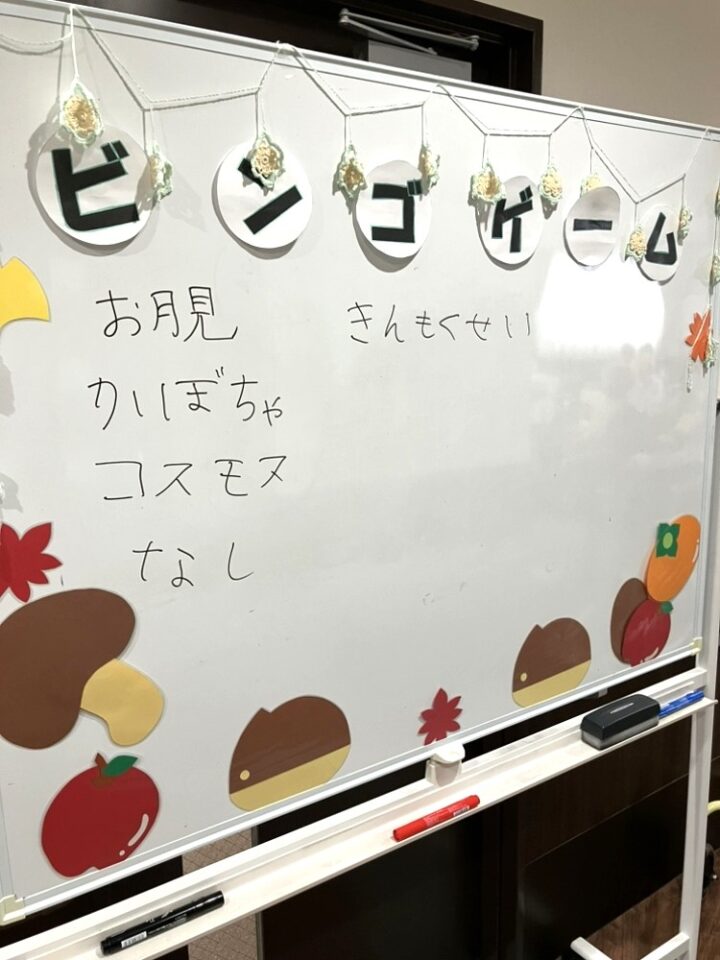 ビンゴゲーム
お月見
かぼちゃ
コスモス
なし
きんもくせい